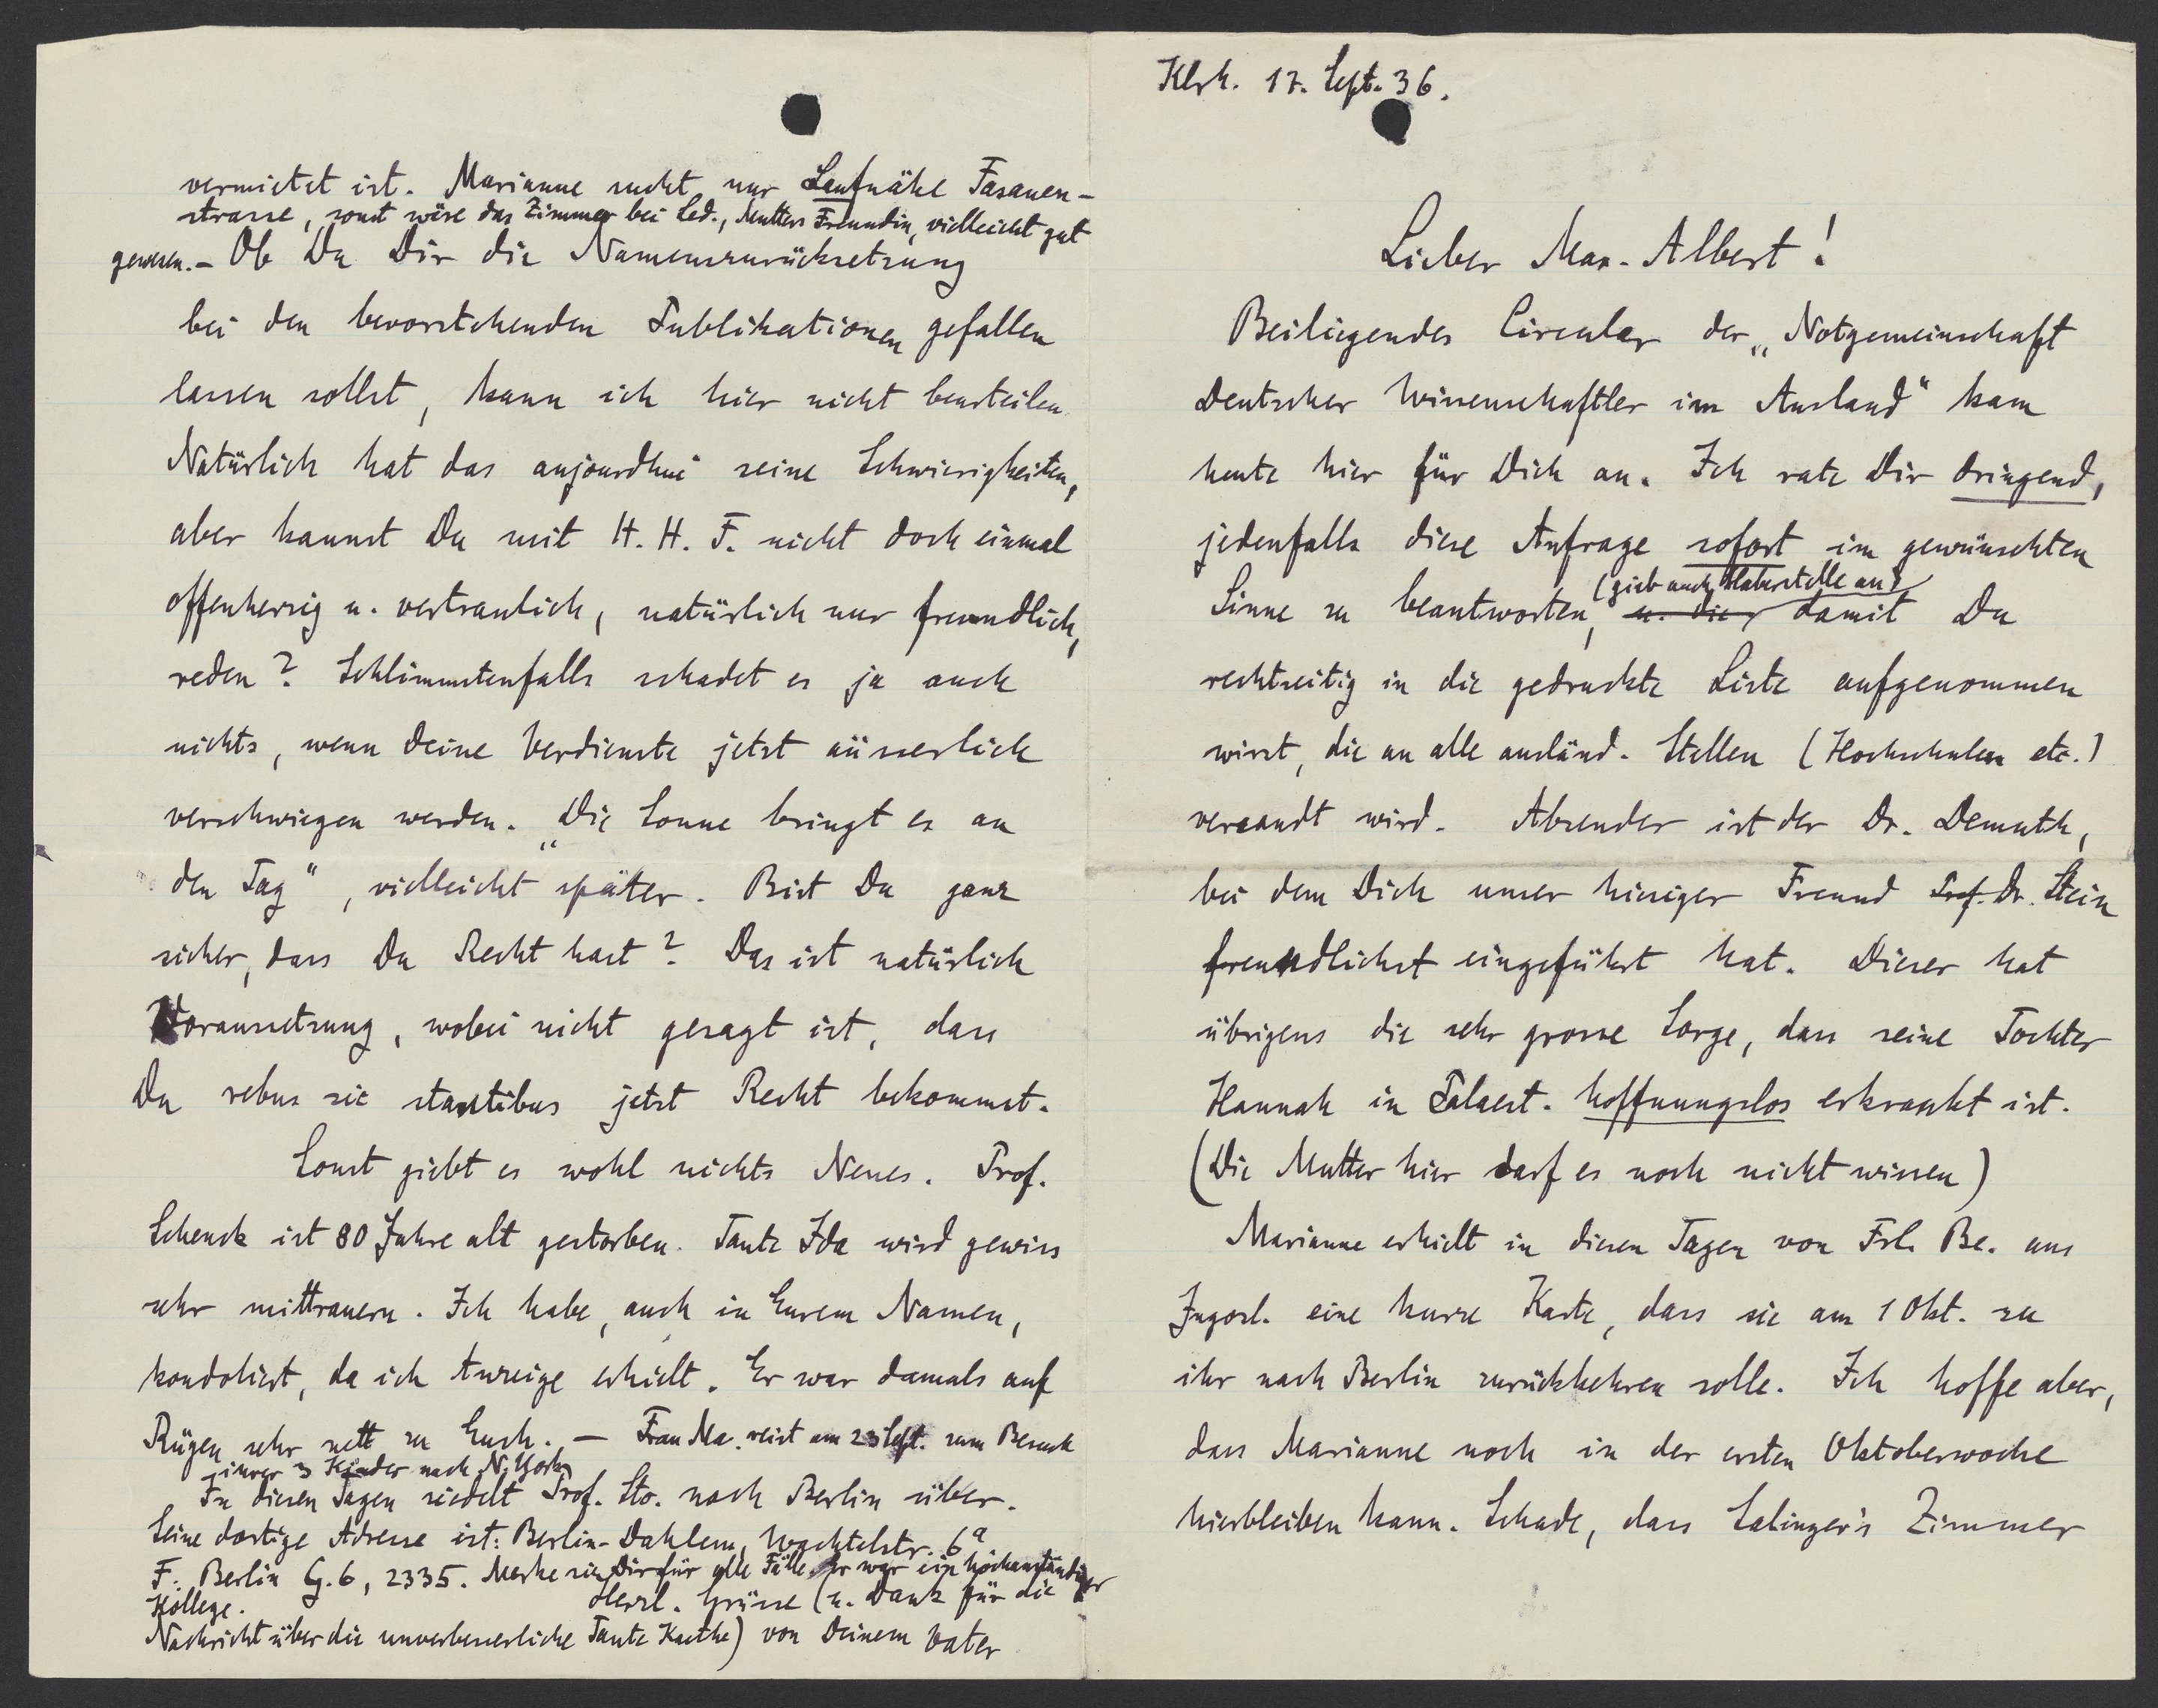 Klrh. 17. Sept. 36.
Lieber Max-Albert!
Beiliegendes Circular der „Notgemeinschaft
Deutscher Wissenschaftler im Ausland" kam
heute hier für Dich an. Ich rate Dir dringend,
jedenfalls diese Anfrage sofort im gewünschten
(gieb auch Haberstelle an)
Sinne zu beantworten, u. die damit Du
rechtzeitig in die gedruckte Liste aufgenommen
wirst, die an alle ausländ. Stellen (Hochschulen etc.)
versandt wird. Absender ist der Dr. Demuth,
bei dem Dich unser hiesiger Freund Prof. Dr. Stein
freundlichst eingeführt hat. Dieser hat
übrigens die sehr grosse Sorge, dass seine Tochter
Hannah in Palaest. hoffnungslos erkrankt ist.
(Die Mutter hier darf es noch nicht wissen)
Marianne erhielt in diesen Tagen von Frl. Be. aus
Jugosl. eine kurze Karte, dass sie am 1 Okt. zu
ihr nach Berlin zurückkehren solle. Ich hoffe aber,
dass Marianne noch in der ersten Oktoberwoche
hierbleiben kann. Schade, dass Salinger's Zimmer
vermietet ist. Marianne sucht nur Laufnähe Fasanen-
strasse, sonst wäre das Zimmer bei Led., Mutters Freundin, vielleicht gut
gewesen. - Ob Du Dir die Namenszurücksetzung
bei den bevorstehenden Publikationen gefallen
lassen sollst, kann ich hier nicht beurteilen.
Natürlich hat das aujourdhui seine Schwierigkeiten,
aber kannst Du mit H. H. F. nicht doch einmal
offenherzig u. vertraulich, natürlich nur freundlich,
reden? Schlimmstenfalls schadet es ja auch
nichts, wenn Deine Verdienste jetzt äusserlich
verschwiegen werden. „Die Sonne bringt es an
den Tag", vielleicht später. Bist Du ganz
sicher, dass Du Recht hast? Das ist natürlich
Voraussetzung, wobei nicht gesagt ist, dass
Du rebus sic stantibus jetzt Recht bekommst.
Sonst giebt es wohl nichts Neues. Prof.
Schenck ist 80 Jahre alt gestorben. Tante Ida wird gewiss
sehr mittrauern. Ich habe, auch in Eurem Namen,
kondoliert, da ich Anzeige erhielt. Er war damals auf
Rügen sehr nett zu Euch. — Frau Ma. reist am 23 Sept. zum Besuch
ihrer 3 Kinder nach N. York.
In diesen Tagen siedelt Prof. Sto. nach Berlin über.
Seine dortige Adresse ist: Berlin-Dahlem, Wachtelstr. 6a
F: Berlin G. 6, 2335. Merke sie Dir für alle Fälle. Er war ein hochanständiger
Kollege. Herzl. Grüsse (u. Dank für die
Nachricht über die unverbesserliche Tante Kaethe) von Deinem Vater